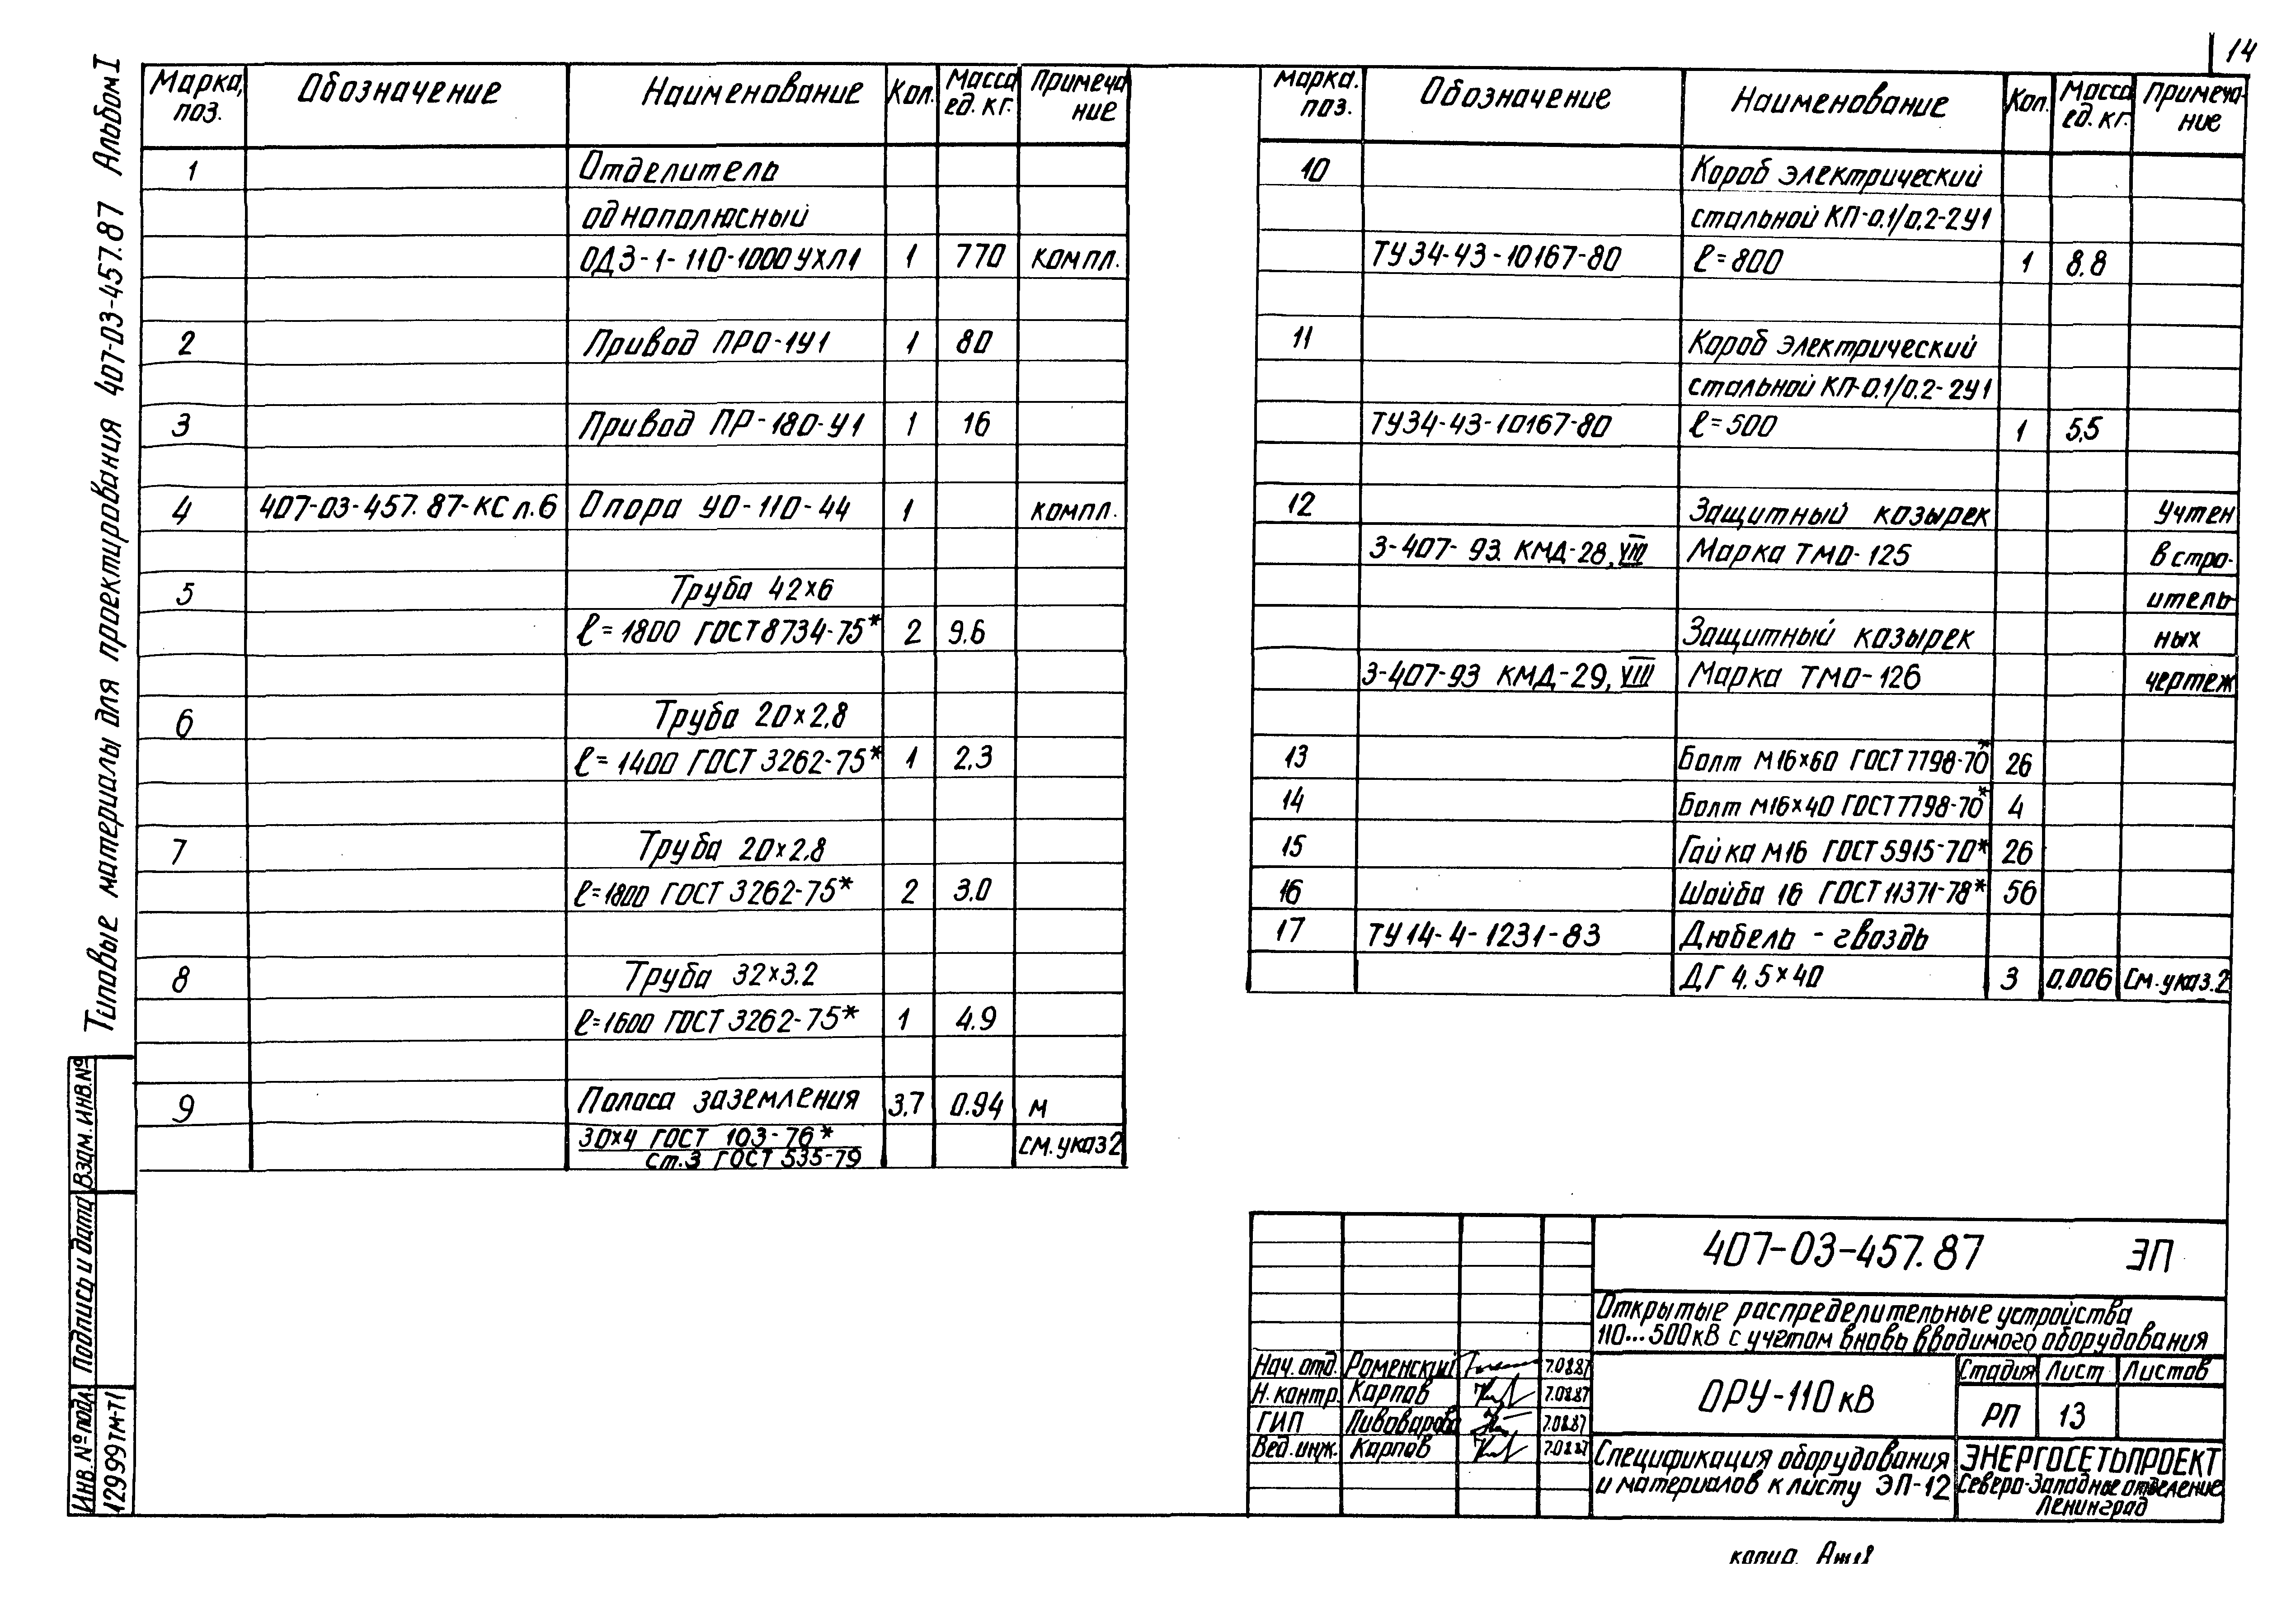 14
Типовые материалы для проектирования 407-03-457.87 Альбом I
Марка, поз. Обозначение Наименование Кол. Масса ед. кг. Примеча ние
1 Отделитель
однополюсный
ОДЗ-1-110-1000 УХЛ1 1 770 компл.
2 Привод ПРО-1У1 1 80
3 Привод ПР-180-У1 1 16
4 407-03-457.87-КС л.6 Опора УО-110-44 1 компл.
5 Труба 42×6
ℓ=1800 ГОСТ 8734-75* 2 9.6
6 Труба 20×2,8
ℓ=1400 ГОСТ 3262-75* 1 2,3
7 Труба 20×2,8
ℓ=1800 ГОСТ 3262-75* 2 3.0
8 Труба 32×3.2
ℓ=1600 ГОСТ 3262-75* 1 4.9
9 Полоса заземления 3,7 0.94 м
30×4 ГОСТ 103-76* см. указ 2
ст.3 ГОСТ 535-79
Марка. поз. Обозначение Наименование Кол. Масса ед. кг. Примеча- ние
10 Короб электрический
стальной КП-0,1/0,2-2У1
ТУ 34-43-10167-80 ℓ=800 1 8,8
11 Короб электрический
стальной КП-0,1/0,2-2У1
ТУ34-43-10167-80 ℓ=500 1 5,5
12 Защитный козырек Учтен
3-407-93 КМД-28, VIII Марка ТМО-125 в стро-
итель
Защитный козырек ных
3-407-93 КМД-29, VIII Марка ТМО-126 чертеж
13 Болт М16×60 ГОСТ 7798-70* 26
14 Болт М16×40 ГОСТ 7798-70* 4
15 Гайка М16 ГОСТ 5915-70* 26
16 Шайба 16 ГОСТ 11371-78* 56
17 ТУ 14-4-1231-83 Дюбель - гвоздь
ДГ 4,5×40 3 0,006 См. указ.2
407-03-457.87 ЭП
Открытые распределительные устройства
110...500кВ с учетом вновь вводимого оборудования
Нач. отд. Роменский 7.08.87
Н. контр. Карпов 7.08.87
ГИП Пивоварова 7.08.87
Вед. инж. Карпов 7.08.87
ОРУ-110 кВ
Стадия Лист Листов
РП 13
Спецификация оборудования
и материалов к листу ЭП-12
ЭНЕРГОСЕТЬПРОЕКТ
Северо-Западное отделение
Ленинград
Инв. № подл. Подпись и дата Взам. инв. №
12999тм-Т1
копир.